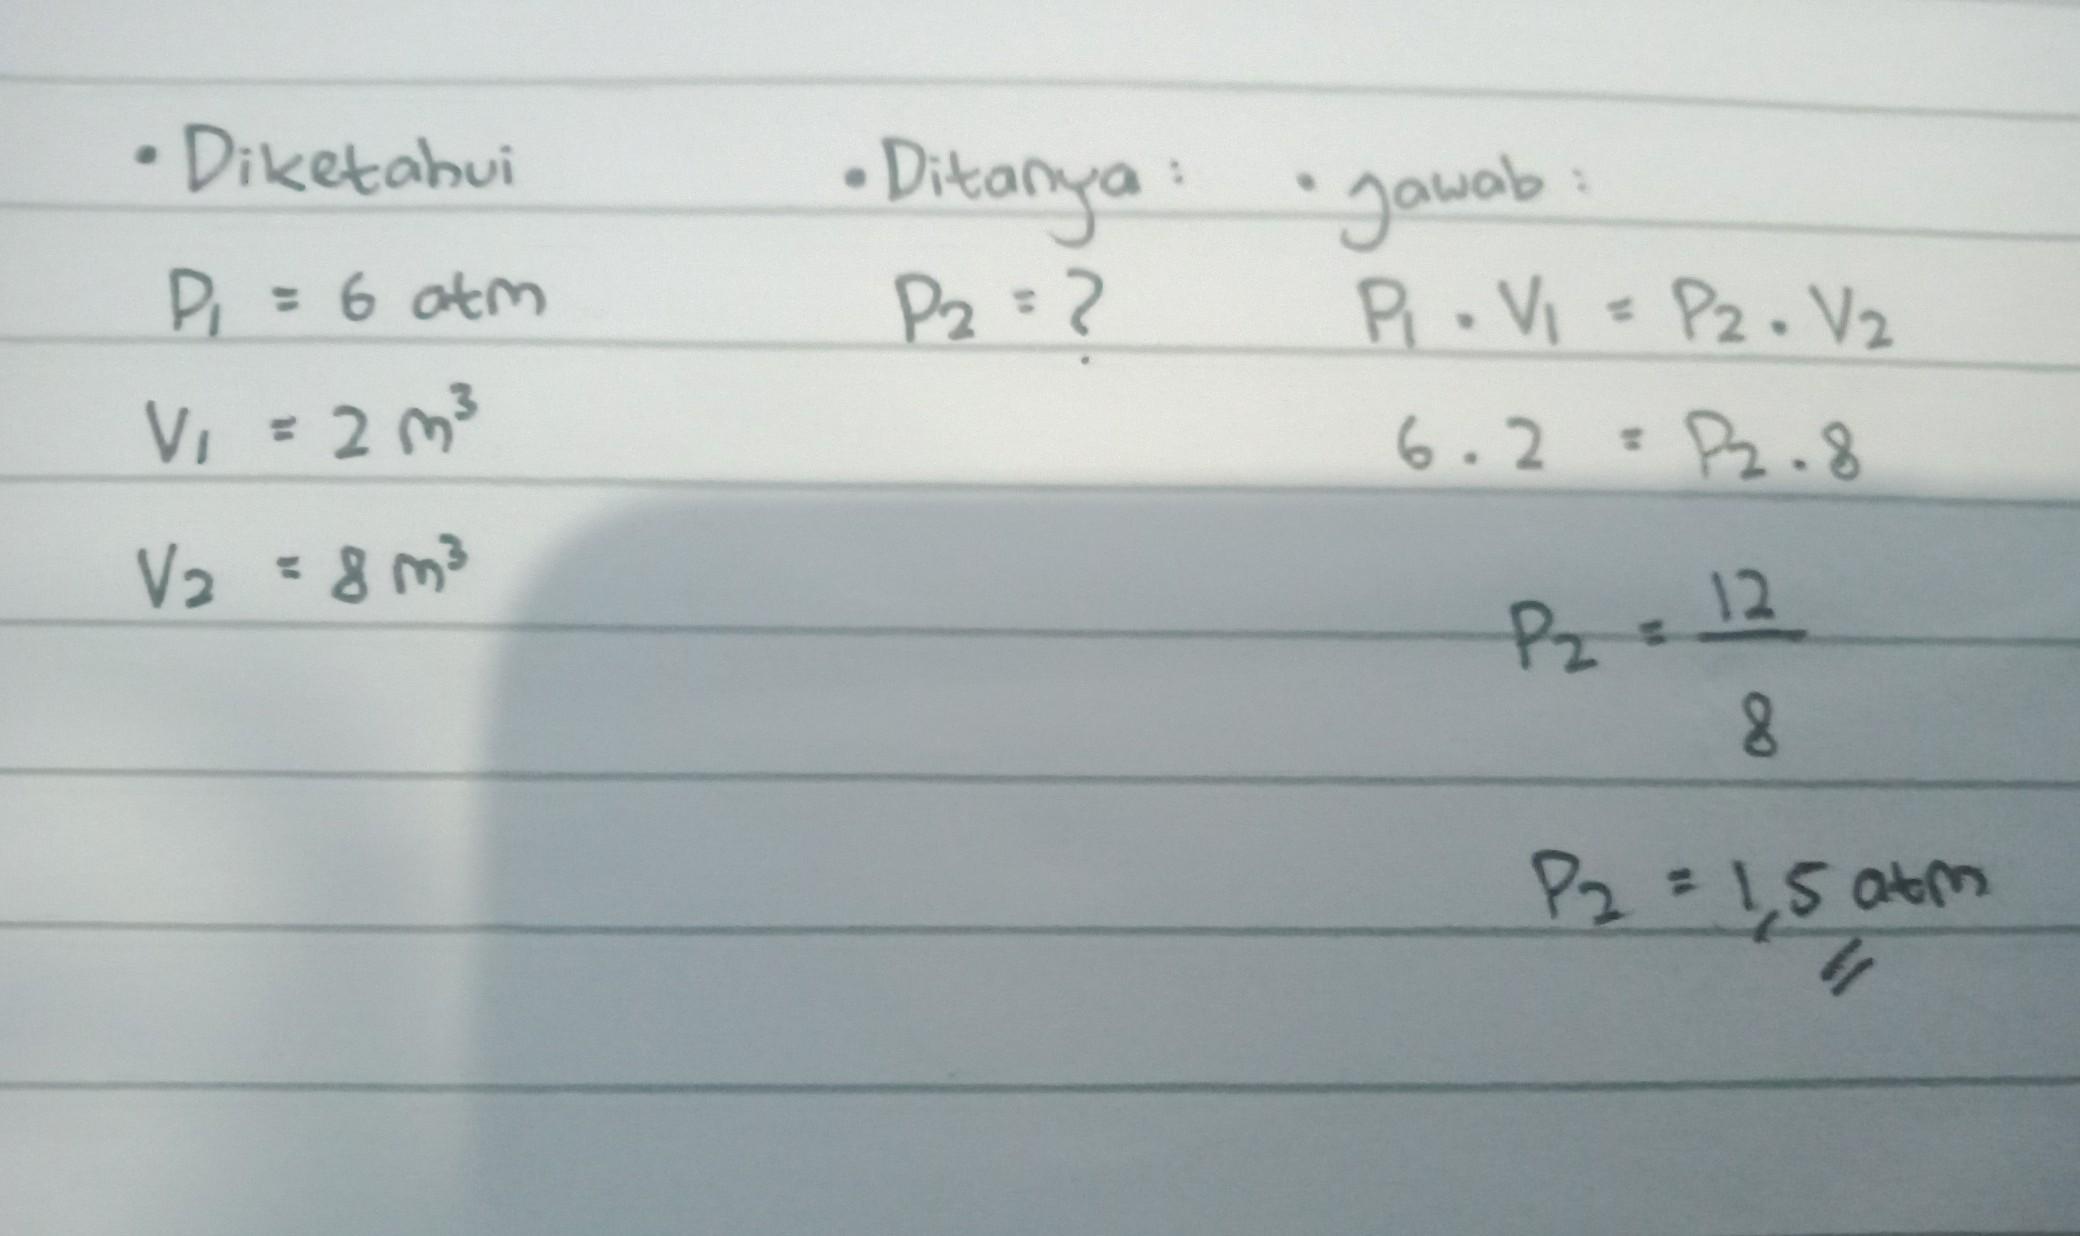 • Diketahui
P₁ = 6 atm
V₁ = 2 m³
V₂ = 8 m³
• Ditanya :
P₂ = ?
• Jawab :
P₁ . V₁ = P₂ . V₂
6 . 2 = P₂ . 8
P₂ = 12/8
P₂ = 1,5 atm //